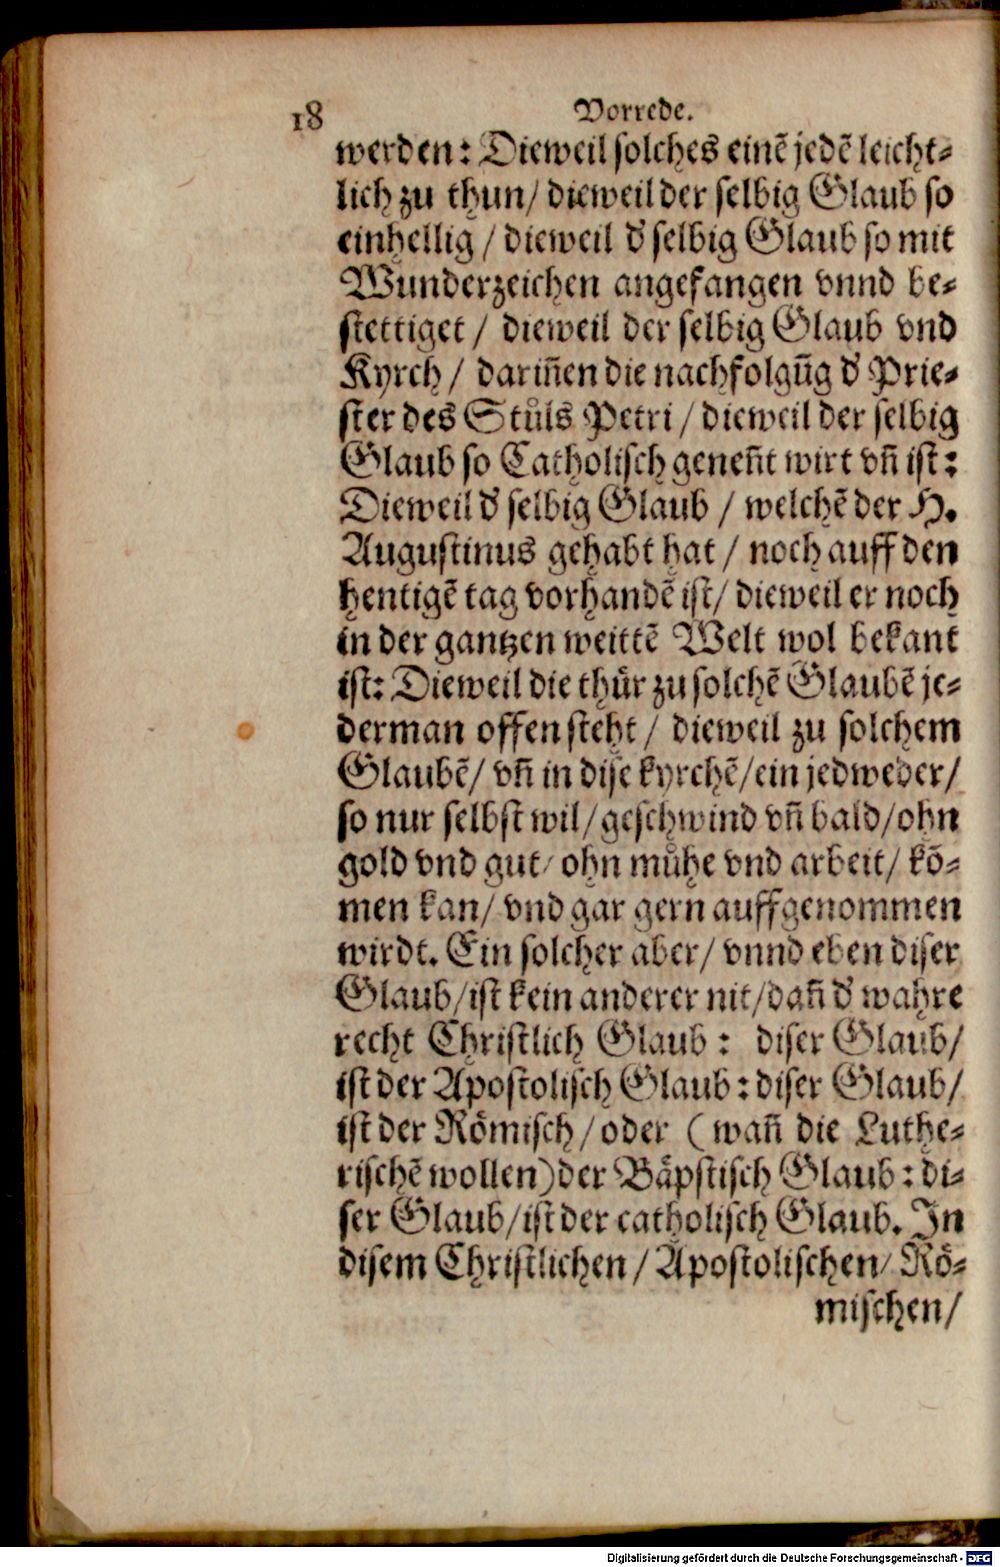 18 Vorrede.
werden: Dieweil solches einẽ jedẽ leicht-
lich zu thun/ dieweil der selbig Glaub so
einhellig / dieweil d' selbig Glaub so mit
Wunderzeichen angefangen vnnd be-
stettiget / dieweil der selbig Glaub vnd
Kyrch / dariñen die nachfolgũg d' Prie-
ster des Stůls Petri / dieweil der selbig
Glaub so Catholisch geneñt wirt vñ ist:
Dieweil d' selbig Glaub / welchẽ der H.
Augustinus gehabt hat / noch auff den
hentigẽ tag vorhandẽ ist/ dieweil er noch
in der gantzen weittẽ Welt wol bekant
ist: Dieweil die thuͤr zu solchẽ Glaubẽ je-
derman offen steht / dieweil zu solchem
Glaubẽ/ vñ in dise kyrchẽ/ein jedweder/
so nur selbst wil/geschwind vñ bald/ohn
gold vnd gut/ ohn můhe vnd arbeit/ kõ-
men kan/ vnd gar gern auffgenommen
wirdt. Ein solcher aber/ vnnd eben diser
Glaub/ist kein anderer nit/dañ d' wahre
recht Christlich Glaub : diser Glaub/
ist der Apostolisch Glaub : diser Glaub/
ist der Roͤmisch/oder (wañ die Luthe-
rischẽ wollen) der Baͤpstisch Glaub : di-
ser Glaub/ist der catholisch Glaub. In
disem Christlichen / Apostolischen/ Roͤ-
mischen/
Digitalisierung gefördert durch die Deutsche Forschungsgemeinschaft - DFG